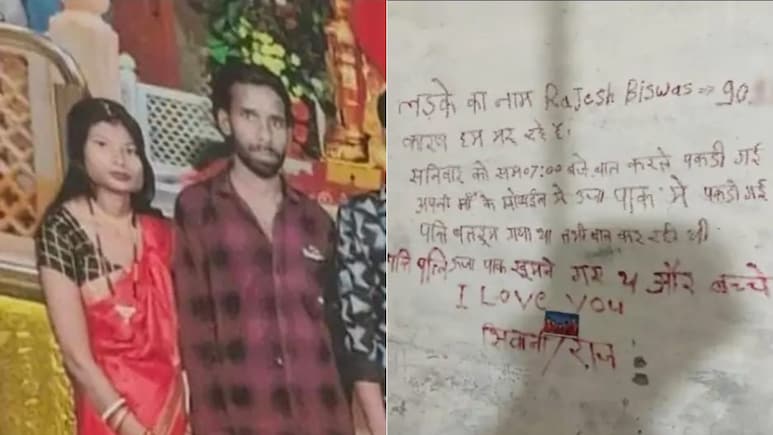 लड़के का नाम Rajesh Biswas ⇒ 90
कारण हम मर रहे हैं।
सनिवार को सम07:00 बजे बात करते पकडी गई
अपनी माँ के मोबाईल में उर्जा पार्क में पकडी गई
पत्नि बातरूम गया था तभी बात कर रही थी
पत्नि उर्जा पार्क घुमने गए थे और बच्चे
I Love You
शिवानी/राज